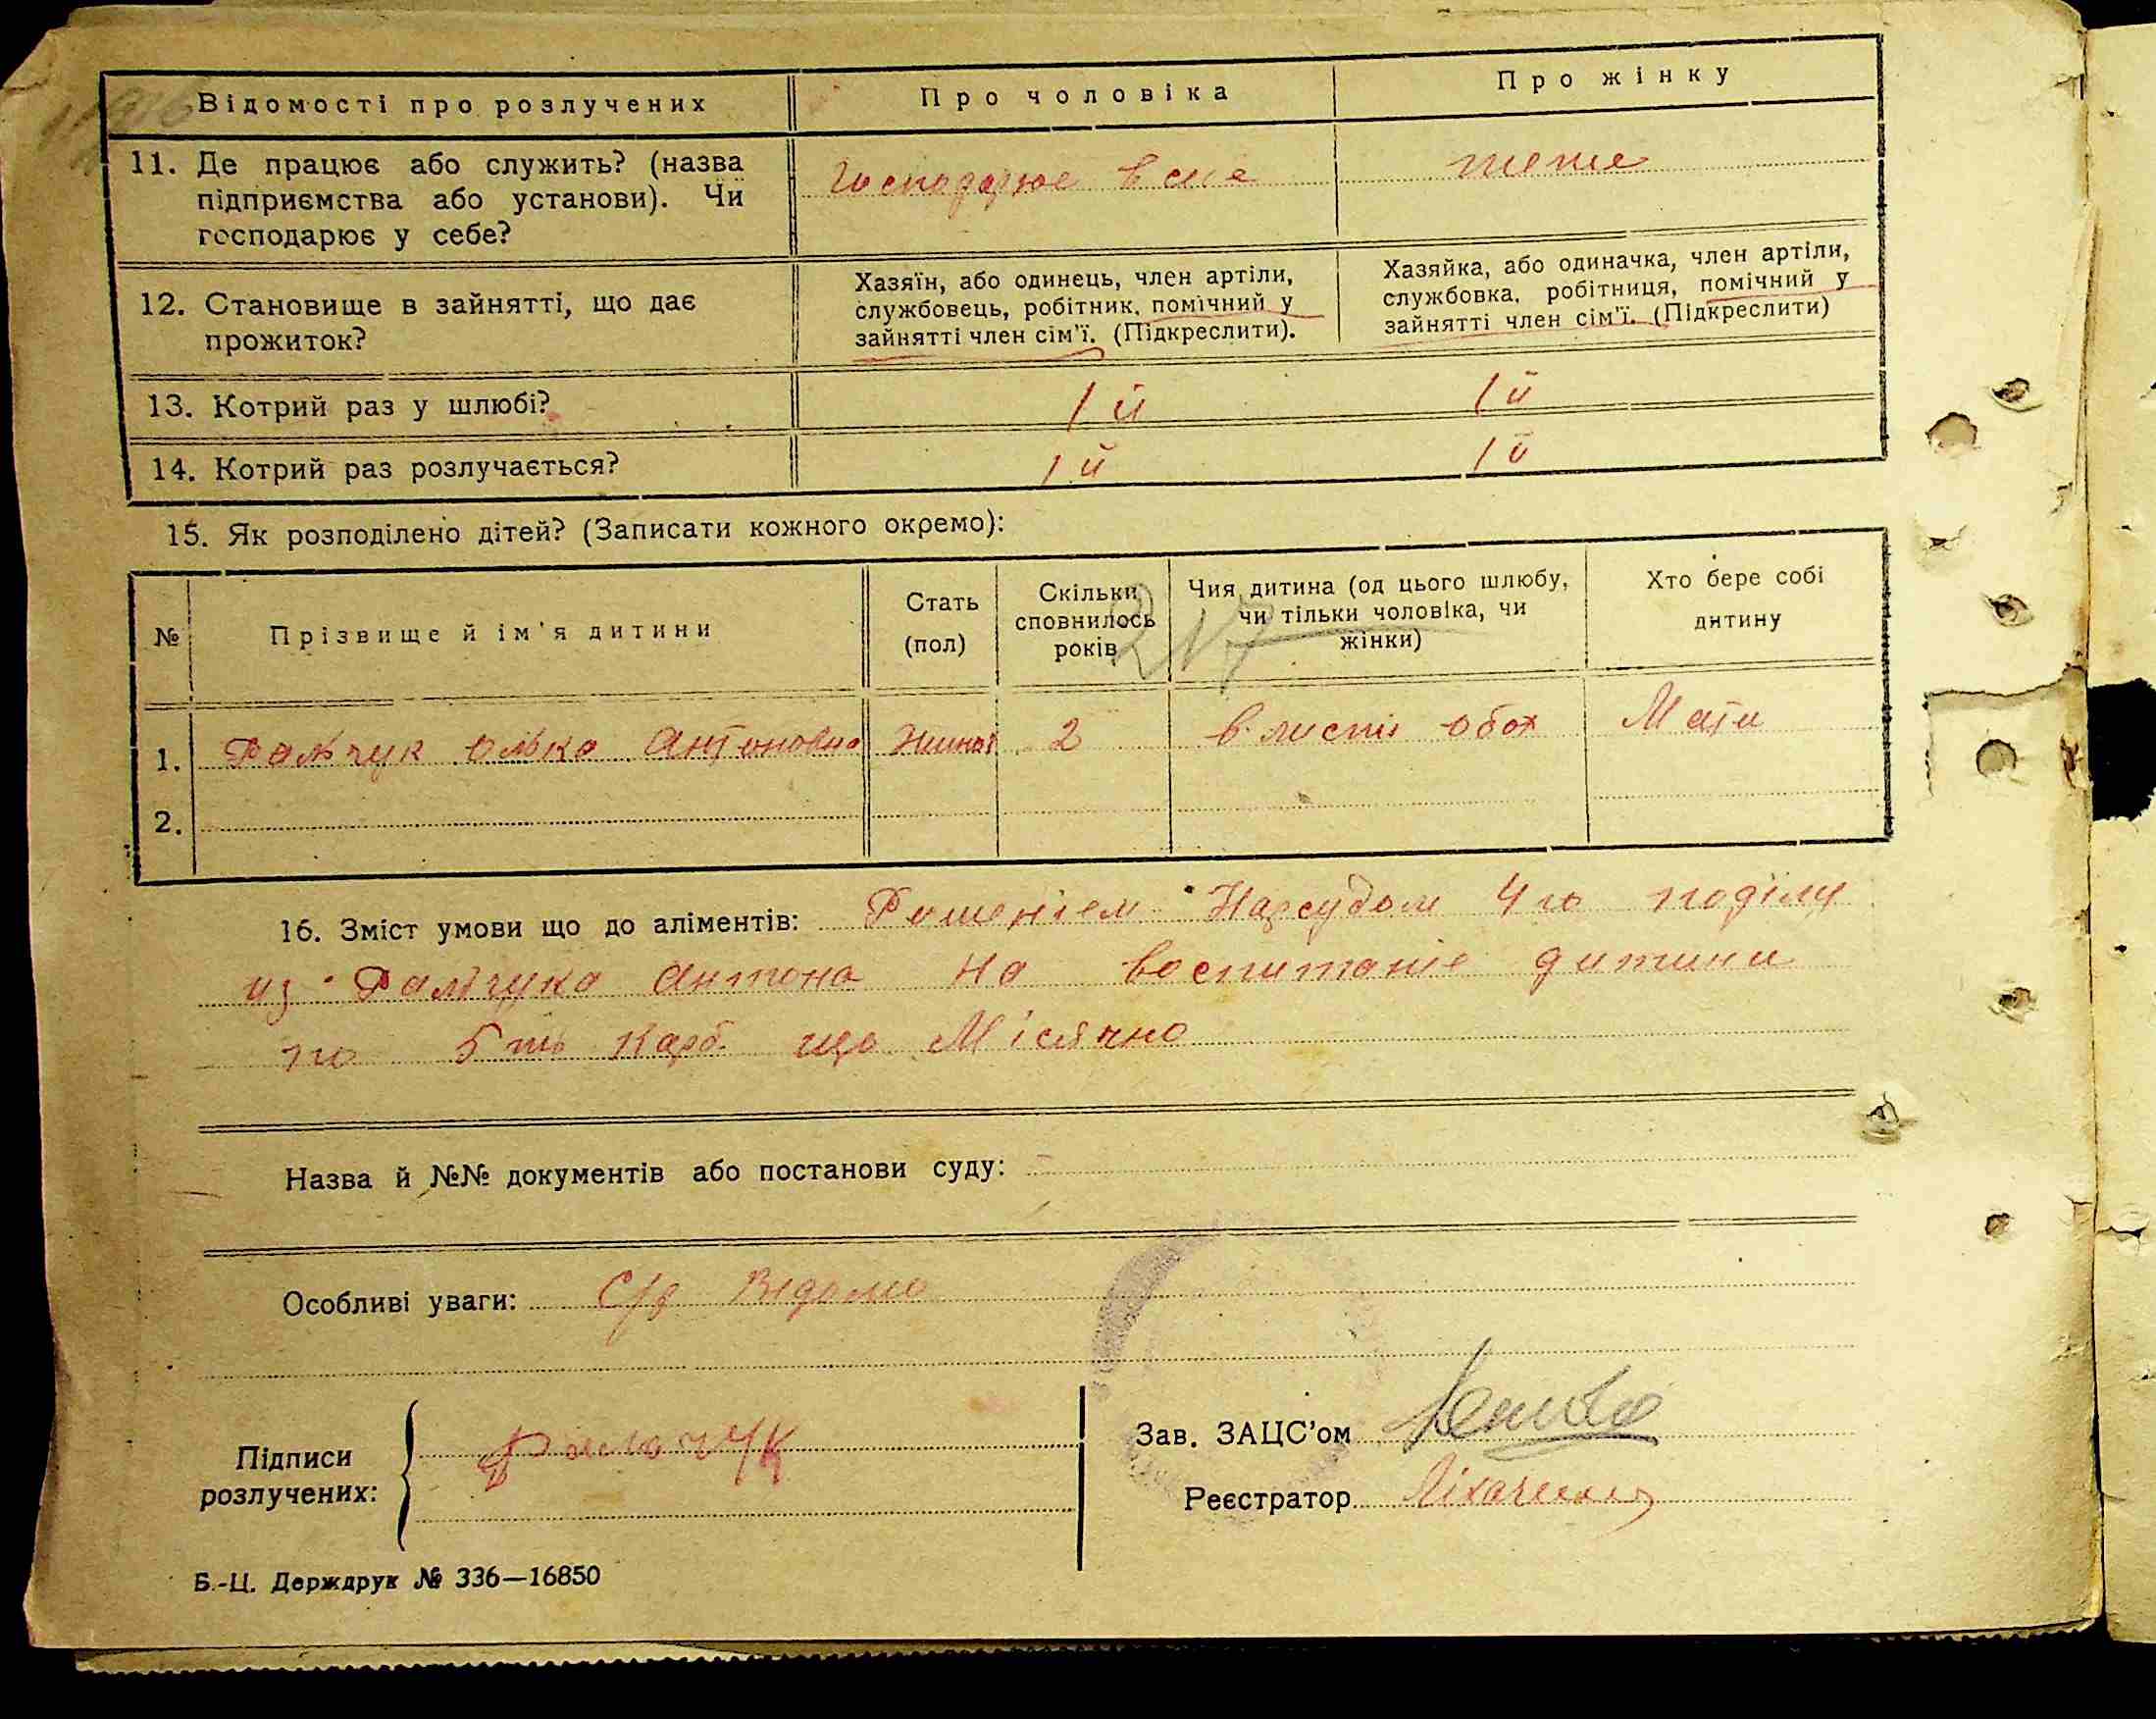 Відомості про розлучених
Про чоловіка
Про жінку
11. Де працює або служить? (назва
підприємства або установи). Чи
господарює у себе?
господарює в селе
тоже
12. Становище в зайнятті, що дає
прожиток?
Хазяїн, або одинець, член артіли,
службовець, робітник, помічний у
зайнятті член сім'ї. (Підкреслити).
Хазяйка, або одиначка, член артіли,
службовка, робітниця, помічний у
зайнятті член сім'ї. (Підкреслити)
13. Котрий раз у шлюбі?
1й
1й
14. Котрий раз розлучається?
1й
1й
15. Як розподілено дітей? (Записати кожного окремо):
№
Прізвище й ім'я дитини
Стать
(пол)
Скільки
сповнилось
років
Чия дитина (од цього шлюбу,
чи тільки чоловіка, чи
жінки)
Хто бере собі
дитину
217
1. Фальчук Антоновна 2 обох Мати
2.
16. Зміст умови що до аліментів: Нарсудом 4го
из Антона на воспитаніе дитини
по 5ть карб що Місячно
Назва й №№ документів або постанови суду:
Особливі уваги: Відомо
Підписи
розлучених:
Зав. ЗАЦС'ом
Реєстратор
Б.-Ц. Держдрук № 336—16850